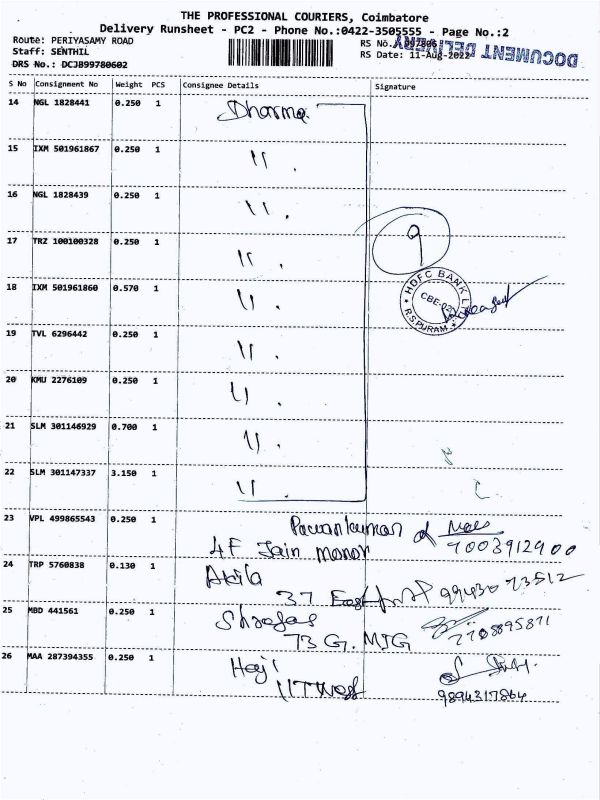 THE PROFESSIONAL COURIERS, Coimbatore
Delivery Runsheet - PC2 - Phone No.:0422-3505555 - Page No.:2
Route: PERIYASAMY ROAD
Staff: SENTHIL
DRS No.: DCJB99780602
RS No.
RS Date: 11-Aug-2022
DOCUMENT DELIVERY
S No Consignment No Weight PCS Consignee Details Signature
14 NGL 1828441 0.250 1 Dharma
15 IXM 501961867 0.250 1 11 .
16 NGL 1828439 0.250 1 11 .
17 TRZ 100100328 0.250 1 11 .
9
18 IXM 501961860 0.570 1 11 .
HDFC BANK LTD
CBE-03
R.S PURAM
19 TVL 6296442 0.250 1 11 .
20 KMU 2276109 0.250 1 11 .
21 SLM 301146929 0.700 1 11 .
22 SLM 301147337 3.150 1 11 .
23 VPL 499865543 0.250 1 Pawankumar
4F Jain manor 9003912900
24 TRP 5760838 0.130 1 Akila
37 East 9943073512
25 MBD 441561 0.250 1
73 G. MIG 7708895871
26 MAA 287394355 0.250 1 Haji
9894317864